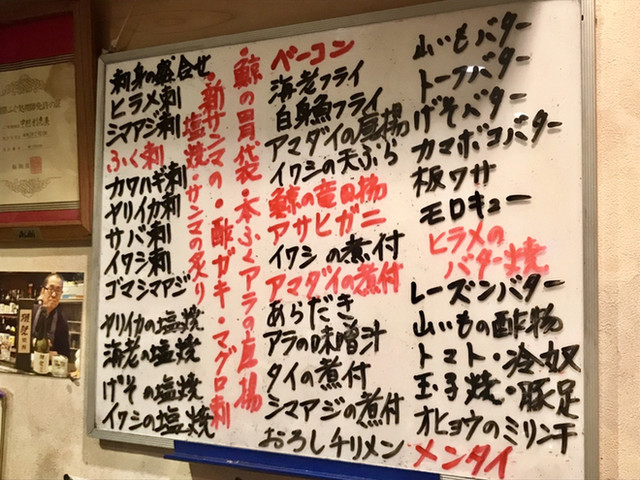 刺身の盛合せ
ヒラメ刺
シマアジ刺
ふく刺
カワハギ刺
ヤリイカ刺
サバ刺
イワシ刺
ゴマシマアジ
ヤリイカの塩焼
海老の塩焼
げその塩焼
イワシの塩焼
・鯨の胃袋・本ふくアラの唐揚
・新サンマの・酢ガキ・マグロ刺
塩焼・サンマの炙り
ベーコン
海老フライ
白身魚フライ
アマダイの唐揚
イワシの天ぷら
鯨の竜田揚
アサヒガニ
イワシの煮付
アマダイの煮付
あらだき
アラの味噌汁
タイの煮付
シマアジの煮付
おろしチリメン
山いもバター
トーフバター
げそバター
カマボコバター
板ワサ
モロキュー
ヒラメの
バター焼
レーズンバター
山いもの酢物
トマト・冷奴
玉子焼・豚足
オヒョウのミリン干
メンタイ